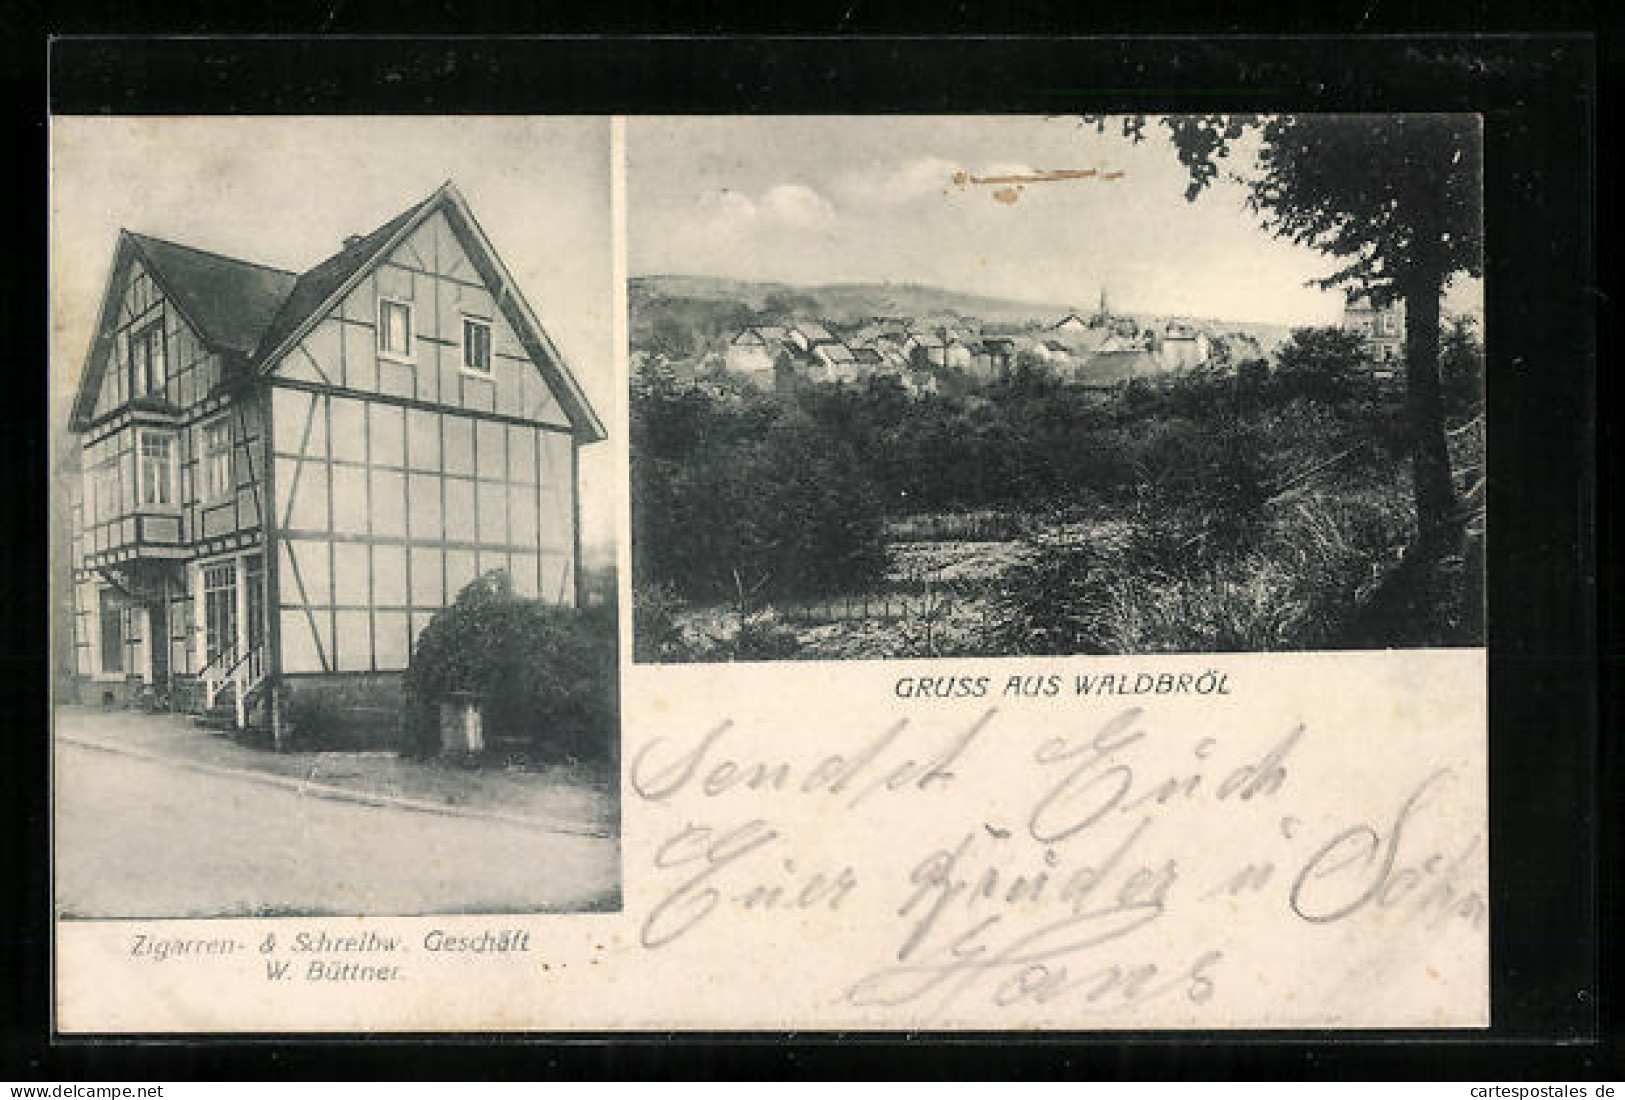 GRUSS AUS WALDBRÖL
Sendet Euch
Euer Bruder u Sohn
Hans
Zigarren- & Schreibw. Geschäft
W. Büttner.
AK / Ansichtskarte
cartespostales de